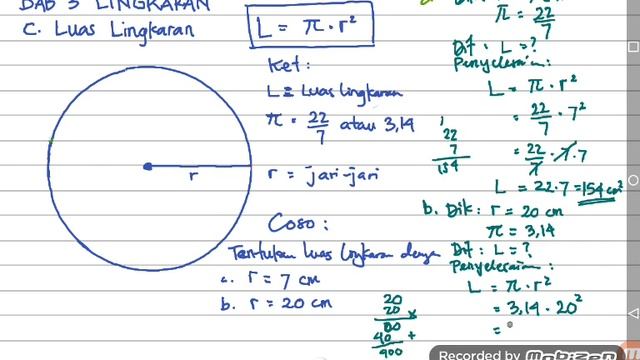 BAB 3 LINGKARAN
C. Luas Lingkaran
L = π · r²
Ket:
L = Luas lingkaran
π = 22/7 atau 3,14
r = jari-jari
r
Coso:
Tentukan luas lingkaran dengan
a. r = 7 cm
b. r = 20 cm
π = 22/7
Dit : L = ?
Penyelesaian:
L = π · r²
= 22/7 · 7²
= 22/7 · 7 · 7
L = 22 · 7 = 154 cm²
1
22
7
154
b. Dik : r = 20 cm
π = 3,14
Dit : L = ?
Penyelesaian :
L = π · r²
= 3,14 · 20²
=
20
20 x
00
40 +
400
RECORDED WITH
Mobizen